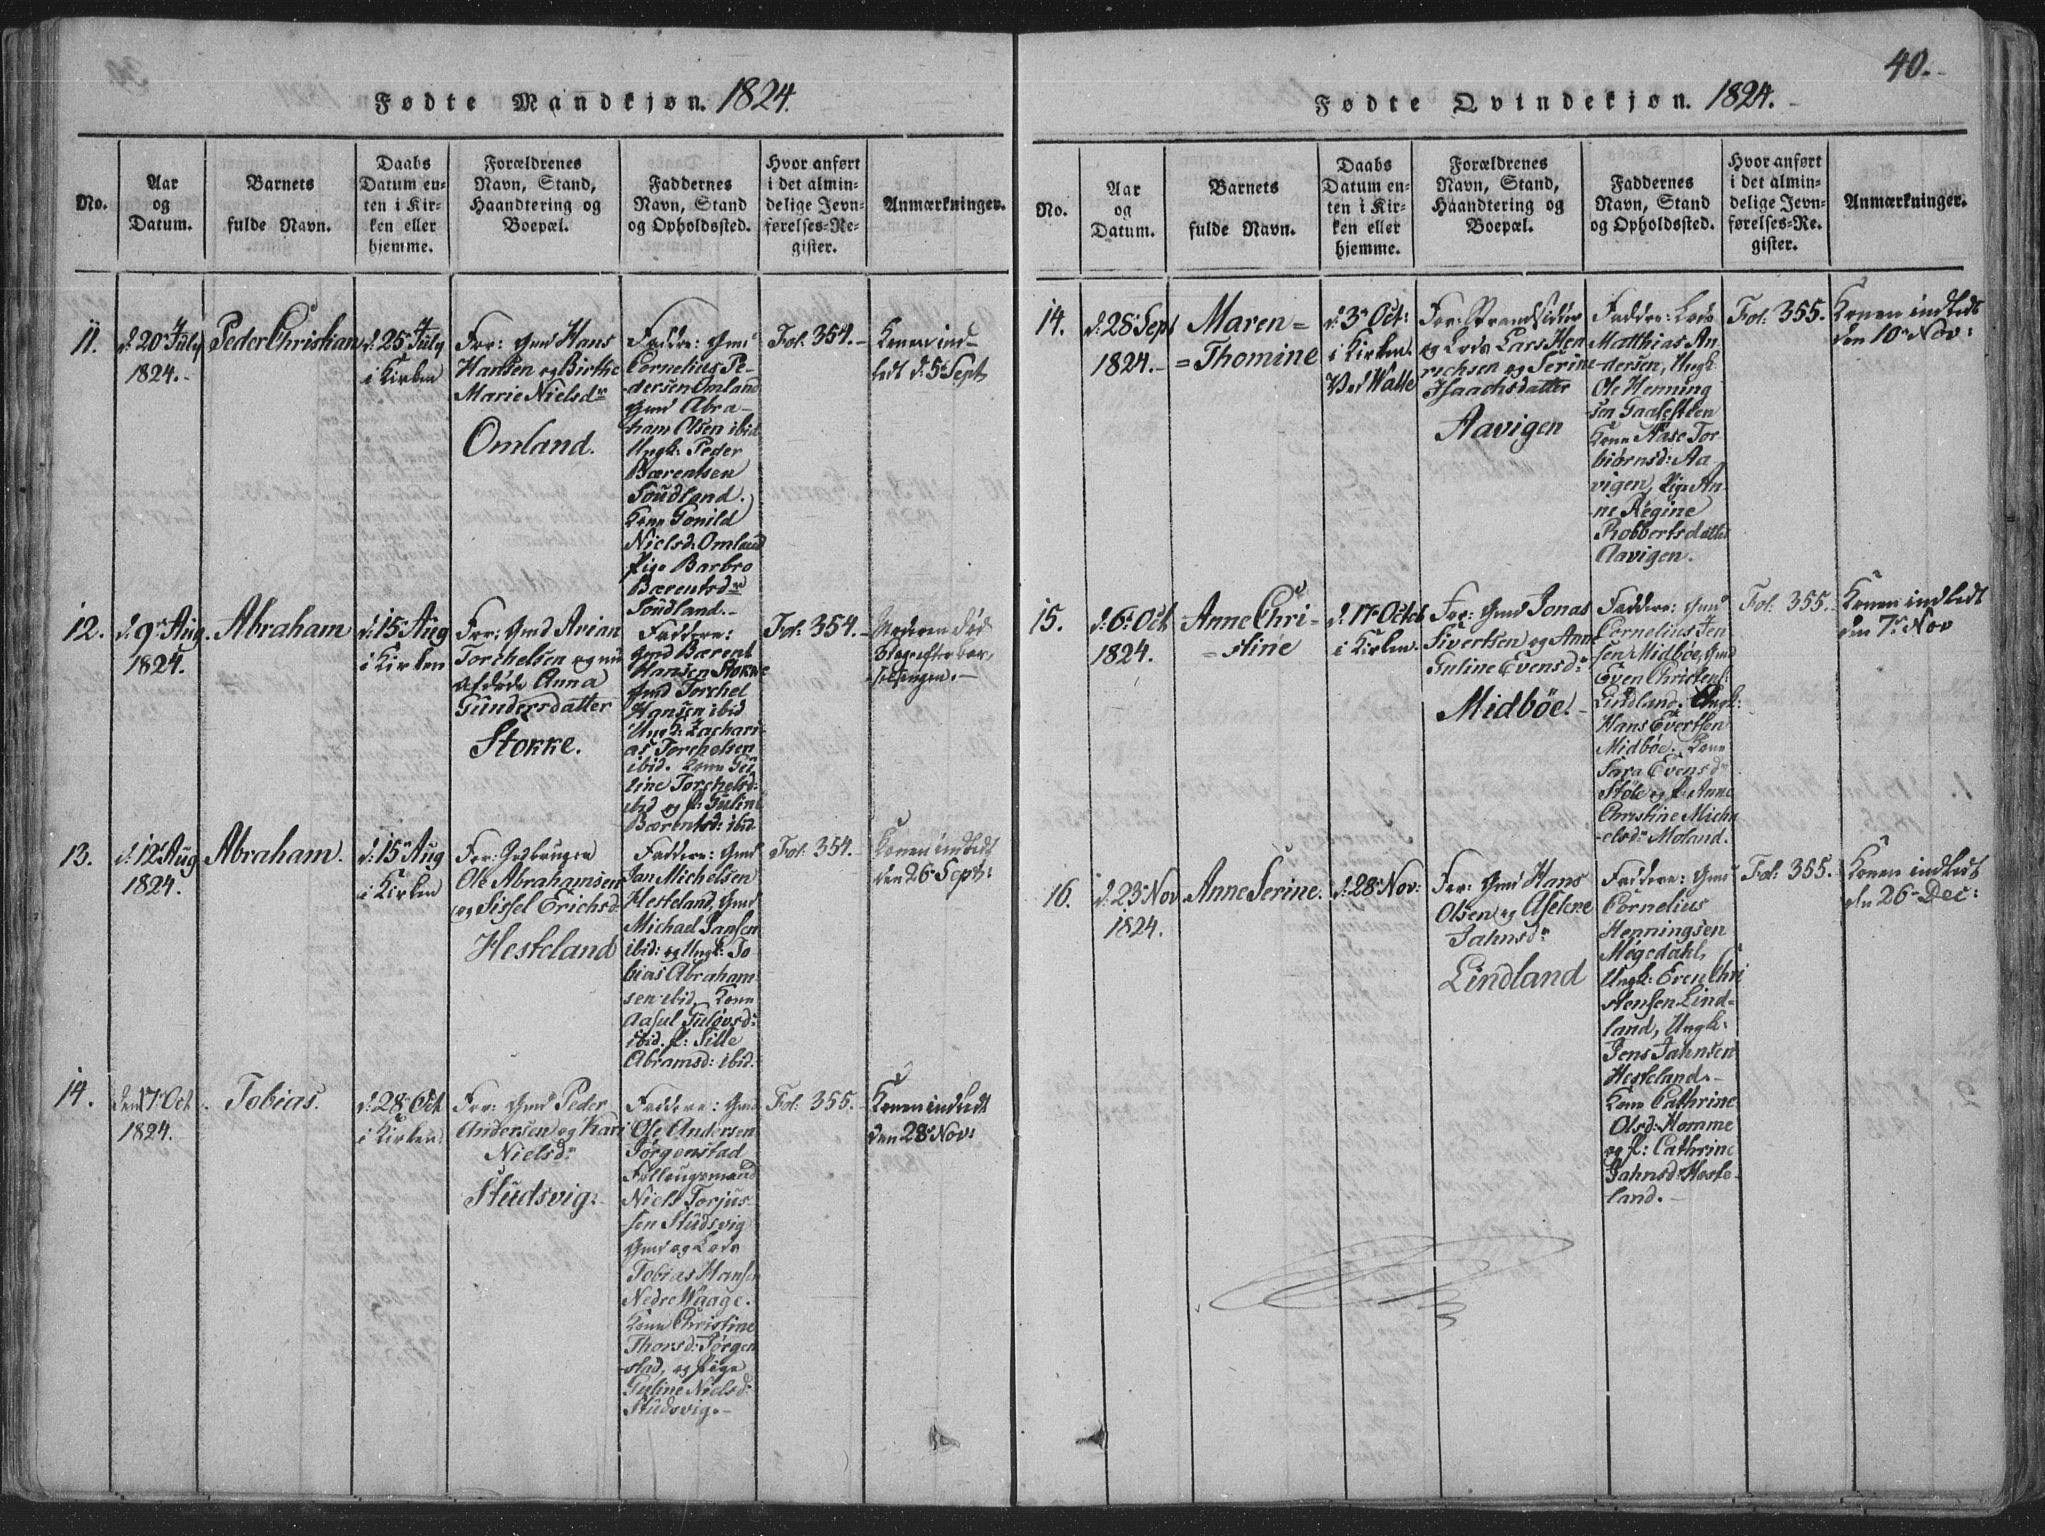 40.
Fødte Mandkjøn. 1824.
No.
Aar
og
Datum.
Barnets
fulde Navn.
Daabs
Datum en-
ten i Kir-
ken eller
hjemme.
Forældrenes
Navn, Stand,
Haandtering og
Boepæl.
Faddernes
Navn, Stand
og Opholdssted.
Hvor anført
i det almin-
delige Jevn-
førelses-Re-
gister.
Anmærkninger.
11.
d: 20 July
1824.
Peder Christian
d: 25 July
i Kirken
For: Gmd Hans
Hansen og Birthe
Marie Nielsdr
Omland.
Faddre: Gmd
Cornelius Pe-
dersen Omland
Gmd Abra-
ham Olsen ibid
Ungk: Peder
Bærentsen
Soudland.
Kone Gonild
Nielsd: Omland
Pige Barbro
Bærentsdr
Soudland.
Fol: 354.
Konen ind-
ledt d: 5 Sept
12.
d: 9 Aug.
1824.
Abraham
d: 15 Aug
i Kirken
For: Gmd Arian
Torchelsen og nu
afdøde Anna
Gundersdatter
Stokke.
Faddere:
Gmd Bærent
Hansen Stokke
Gmd Torchel
Hansen ibid
Ungk: Zachari-
as Torchelsen
ibid. Kone
Torchelsd:
ibid og P: Guline
Bærentsd: ibid.
Fol: 354.
Moderen død
13.
d: 12 Aug
1824.
Abraham.
d: 15 Aug
i Kirken
For:
Ole Abrahamsen
og Sissel Erichsd:
Hesteland
Faddere: Gmd
Jan Michelsen
Hesteland, Gmd
Michael Jansen
ibid: og Ungk: To-
bias Abraham-
sen ibid, Kone
Aasul
ibid. P: Sille
Abramsd: ibid:
Fol: 354.
Konen indledt
den 26 Sept:
14.
den 17 Oct
1824.
Tobias.
d: 28 Oct
i Kirken
For: Gmd Peder
Andersen og Kari
Nielsd:
Studsvig.
Faddere: Gmd
Ole Andersen
Jørgenstad
Niels Torjus-
sen Studsvig
Gmd og Lods
Tobias Hansen
Nedre Waage.
Kone Christine
Thorsd: Jørgen-
stad, og Pige
Guline Nielsd:
Studsvig.
Fol: 355.
Konen indledt
den 28 Nov:
Fødte Qvindekjøn. 1824.
No.
Aar
og
Datum.
Barnets
fulde Navn.
Daabs
Datum en-
ten i Kir-
ken eller
hjemme.
Forældrenes
Navn, Stand,
Haandtering og
Boepæl.
Faddernes
Navn, Stand
og Opholdssted.
Hvor anført
i det almin-
delige Jevn-
førelses-Re-
gister.
Anmærkninger.
14.
d: 28 Sept
1824.
Maren =
= Thomine
d: 3 Oct:
i Kirken.
For: Strandsidder
og Lods Lars Hen-
richsen og Serine
Isaachsdatter
Aavigen
Faddre: Lods
Matthias An-
dersen, Ungk:
Ole Henning-
sen Gaasesteen
Kone Aase Tor-
biørnsd: Aa-
vigen, Pige An-
ne Regine
Robbertsdatter
Aavigen.
Fol: 355.
Konen indledt
den 10 Nov:
15.
d: 6 Oct
1824.
Anne Chri-
= stine
d: 17 Octob
i Kirken.
For: Gmd Jonas
Sivertsen og Anne
Guline Evensdr
Midbøe.
Faddere: Gmd
Cornelius Jen-
sen Midbøe, Gmd
Even Christens:
Lindland. Ungk:
Hans Evertsen
Midbøe. Kone
Sara Evensdr
Støle og P: Anne
Christine Mich-
elsdr Moland.
Fol: 355.
Konen indledt
den 7 Nov
16.
d: 23 Nov
1824.
Anne Serine.
d: 28 Nov:
For: Gmd Hans
Olsen og Aselene
Jahnsdr
Lindland
Faddere: Gmd
Cornelius
Henningsen
Møgedahl,
Ungk: Even Chri-
stensen Lind-
land, Ungk:
Jens Jahnsen
Hesteland.
Kone Cathrine
Olsd: Homme
og P: Cathrine
Jahnsd: Heste-
land.
Fol: 355.
Konen indledt
den 26 Dec: